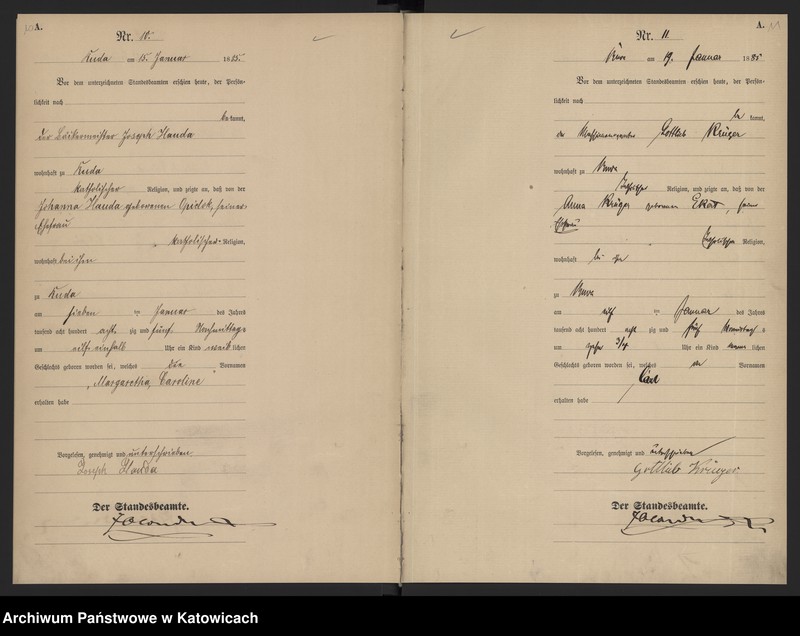 A.
Nr. 10.
Ruda am 15. Januar 1885.
Vor dem unterzeichneten Standesbeamten erschien heute, der Persön-
lichkeit nach
bekannt,
der Bäckermeister Joseph Handa
wohnhaft zu Ruda
katholischer Religion, und zeigte an, daß von der
Johanna Handa geborenen seiner
Ehefrau
katholischer Religion,
wohnhaft bei ihm
zu Ruda
am sieben ten Januar des Jahres
tausend acht hundert acht zig und fünf Nachmittags
um elf einhalb Uhr ein Kind weiblichen
Geschlechts geboren worden sei, welches die Vornamen
„Margaretha Caroline“
erhalten habe
Vorgelesen, genehmigt und unterschrieben
Joseph Handa
Der Standesbeamte.
A. 11
Nr. 11
am 19. Januar 1885
Vor dem unterzeichneten Standesbeamten erschien heute, der Persön-
lichkeit nach
bekannt,
der Gottlieb Krüger
wohnhaft zu
katholischer Religion, und zeigte an, daß von der
Anna Krüger geborenen seiner
Ehefrau
katholischer Religion,
wohnhaft bei ihm
zu
am elf ten Januar des Jahres
tausend acht hundert acht zig und fünf Vormittags
um 3/4 Uhr ein Kind männlichen
Geschlechts geboren worden sei, welches den Vornamen
Carl
erhalten habe
Vorgelesen, genehmigt und unterschrieben
Gottlieb Krieger
Der Standesbeamte.
Archiwum Państwowe w Katowicach